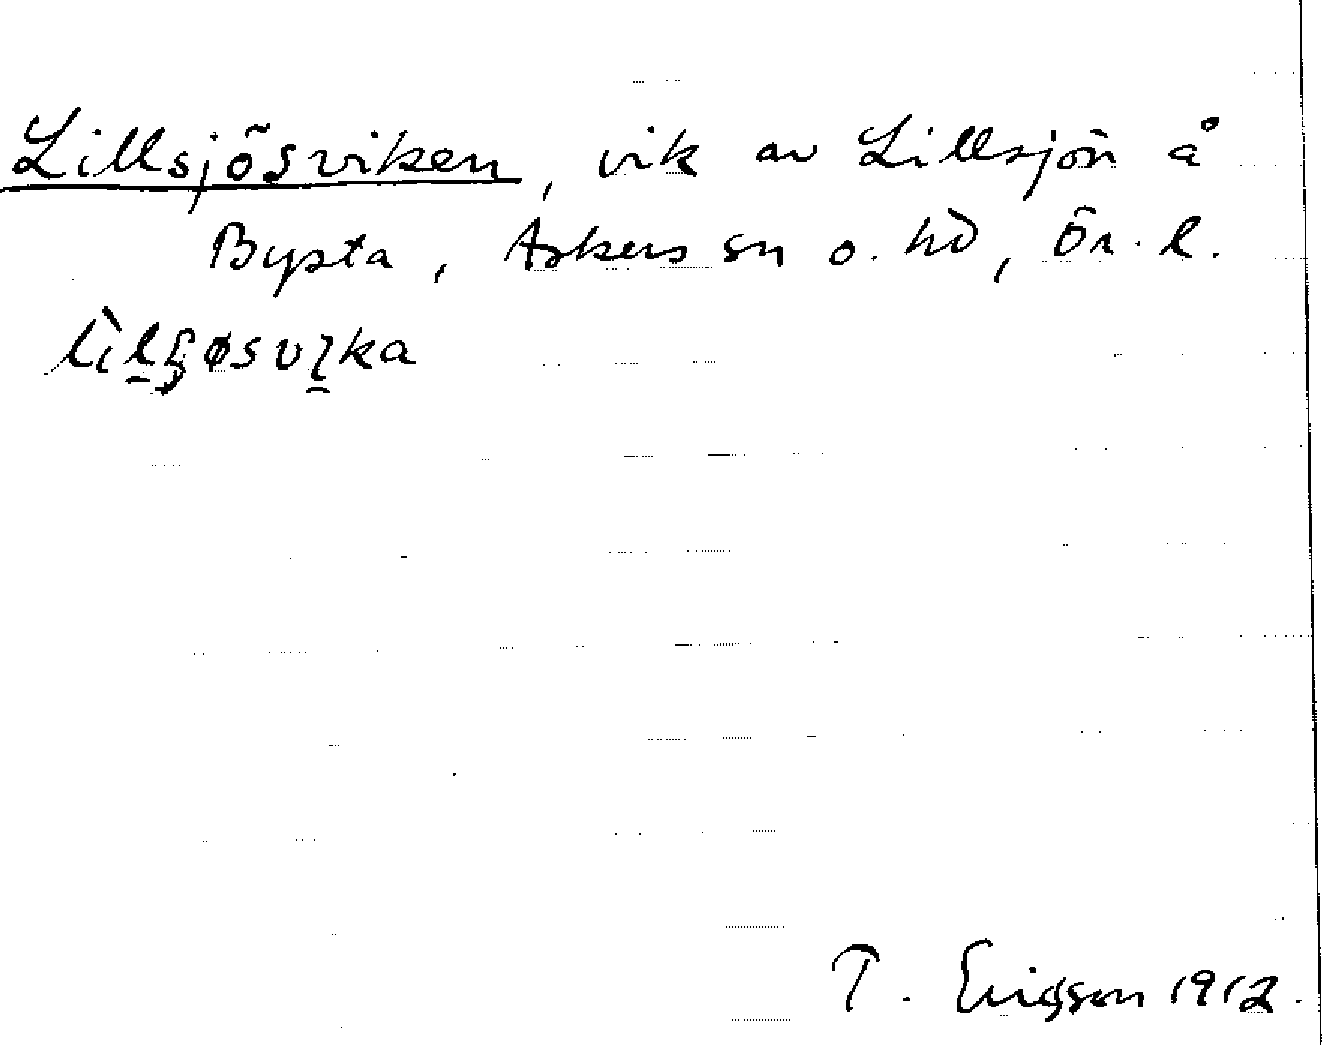 Lillsjösviken, vik av Lillsjön å
Bysta, Askers sn o. hd, Ör. l.
T. Ericsson 1912.